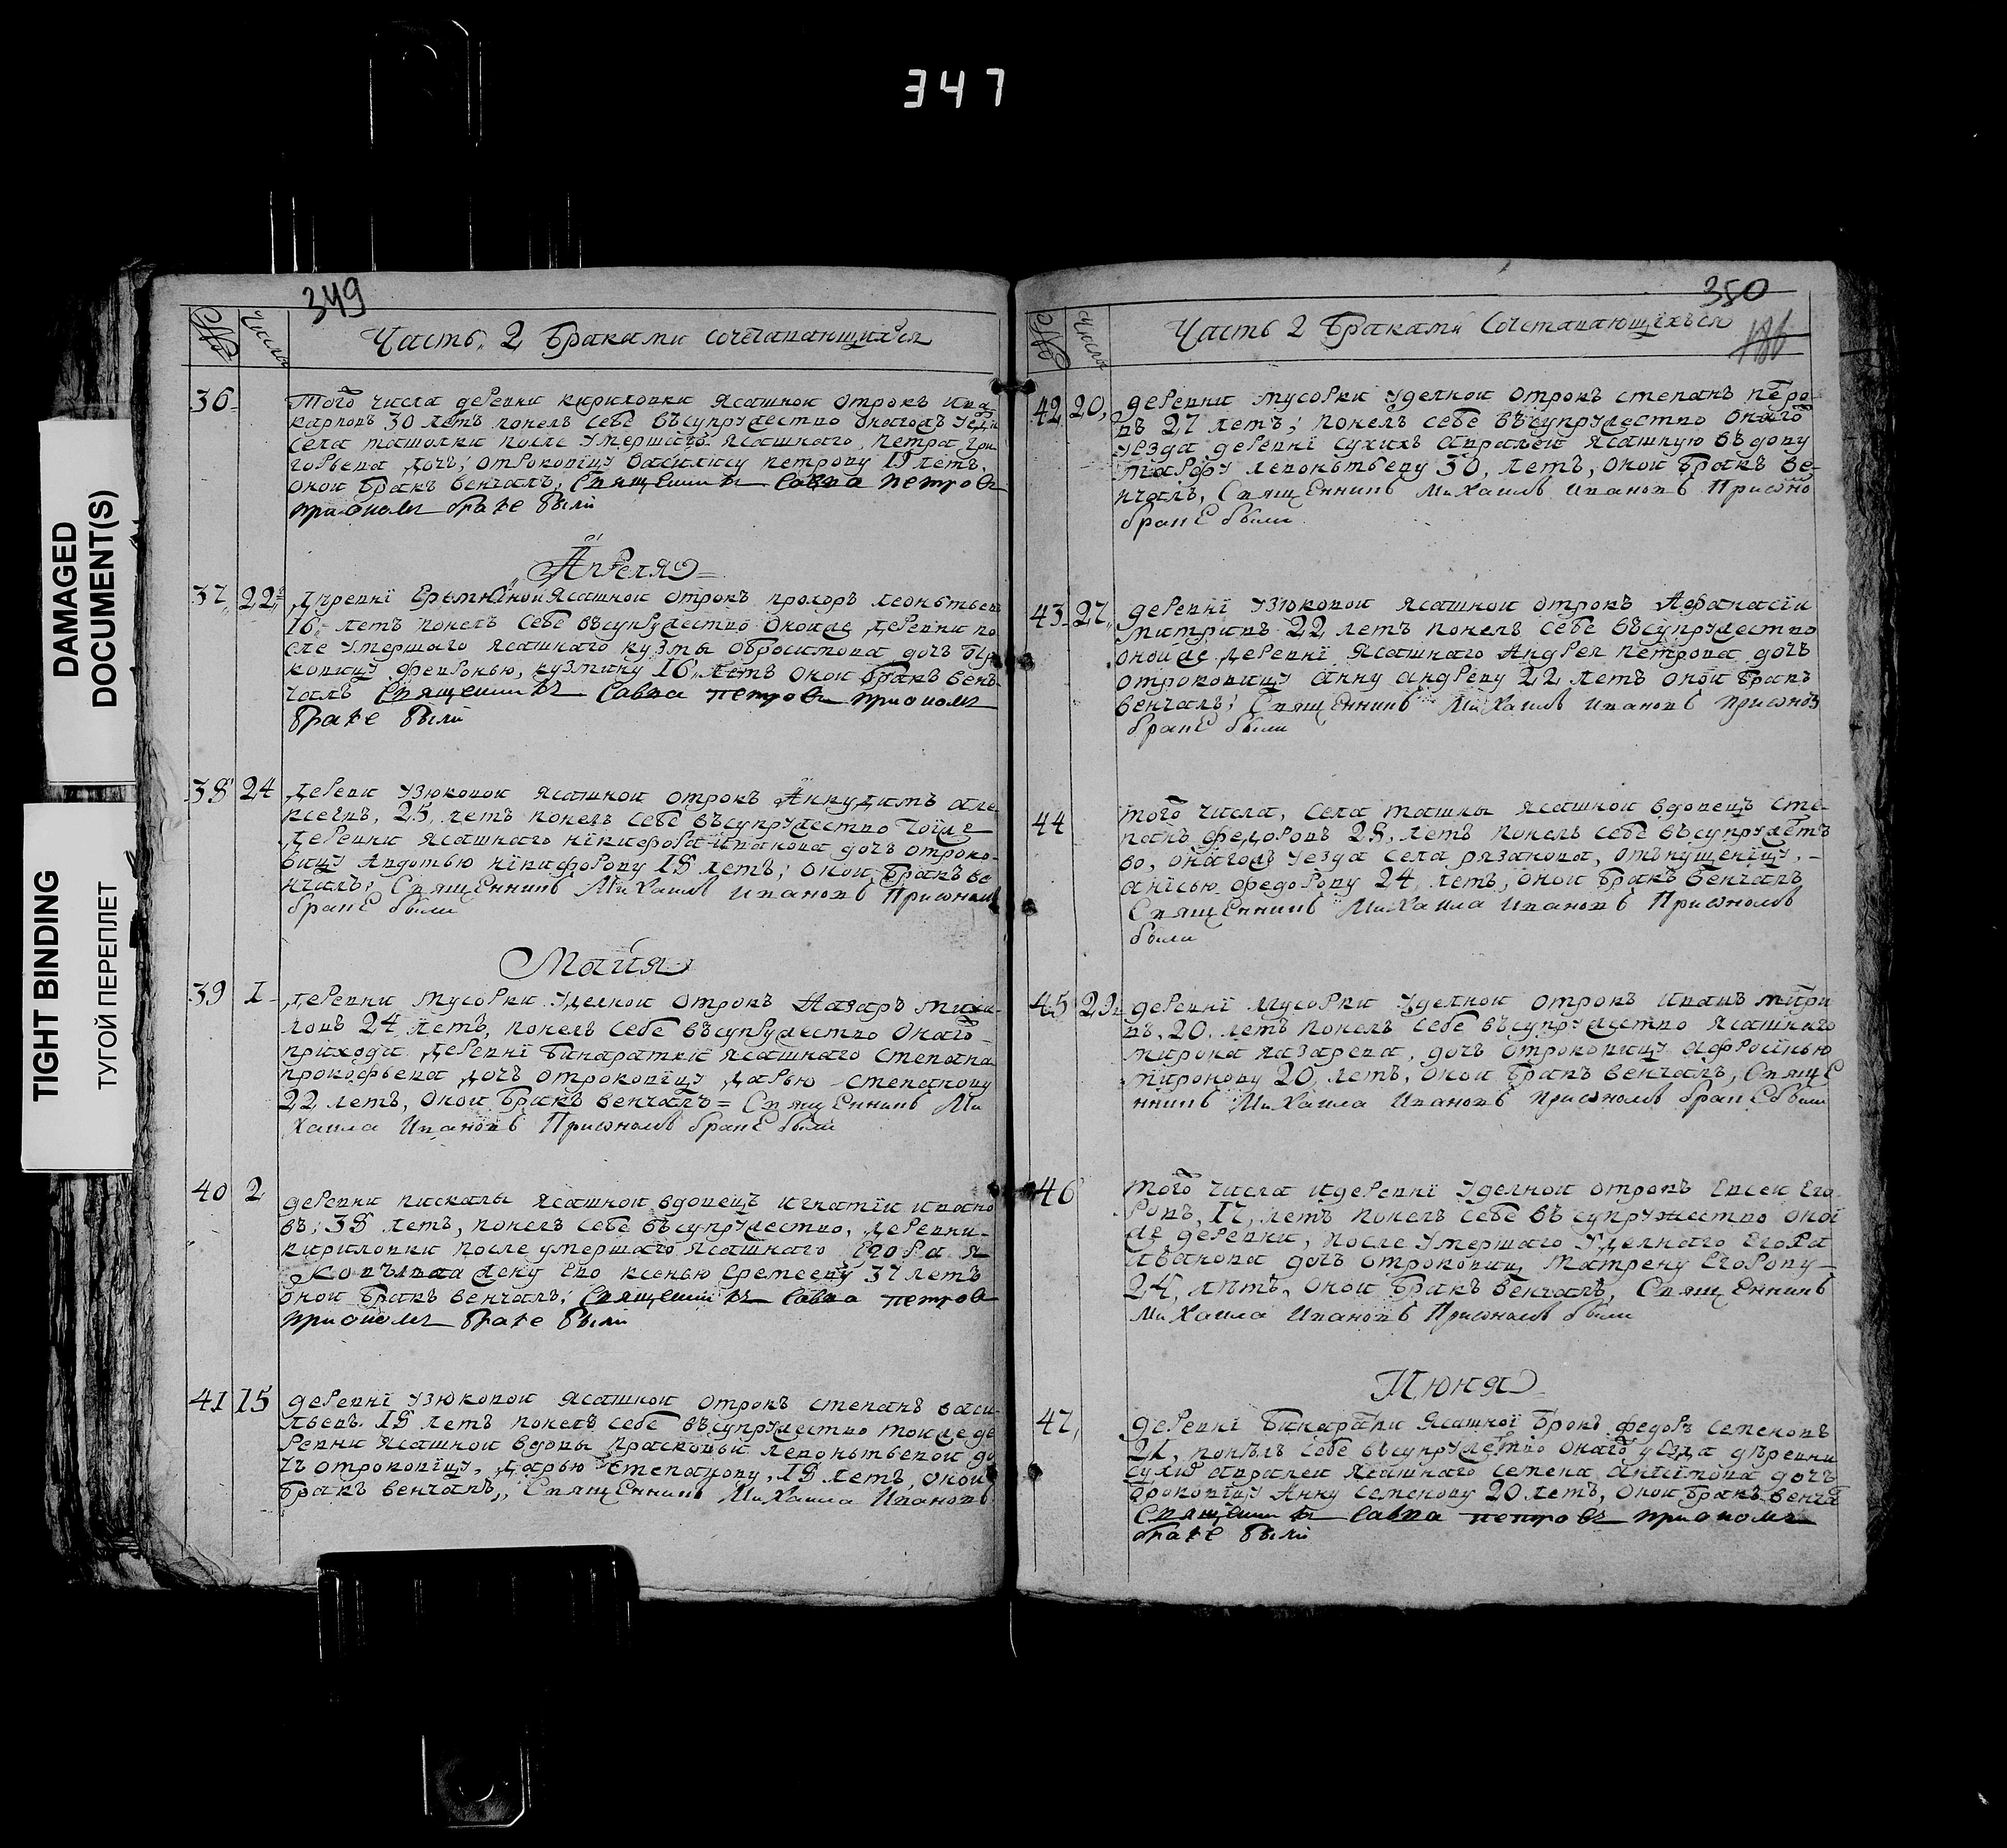 347
DAMAGED
DOCUMENT(S)
TIGHT BINDING
ТУГОЙ ПЕРЕПЛЕТ
349
№ Числа
Часть 2 Браками сочетавающихся
36 Того числа деревни кириловки ясашной отрокъ ива
карповъ 30 летъ понелъ себе въсупружество оногожъ уез
села ташолки после умершаго ясашнаго петра гри
горьева дочь отроковицу василису петрову 19 летъ
оной бракъ венчалъ, Священникъ Савва петровъ
приономъ браке были
Апреля
37 22 деревнї ясашной отрокъ прохоръ леонътьевъ
16 летъ понелъ себе въсупружество оной же деревни по
сле умершаго ясашнаго кузмы дочь
ковицу февронью кузмину 16 летъ оной бракъ венъ
чалъ Священникъ Савва петровъ приономъ
браке были
38 24 деревни узюковой ясашной отрокъ Анкудимъ але
ксеевъ, 25 летъ понелъ себе въсупружество тойже
деревни ясашнаго нїкифора иванова дочь отроко
вицу авдотью нїкифорову 18 летъ; оной бракъ ве
нчалъ; Священникъ Михаилъ Ивановъ Приономъ
браке были
Майя
39 1 деревни мусорки уделной отрокъ Назаръ михаи
ловъ 24 летъ, понелъ себе въсупружество онаго
прихода деревнї бинаратки ясашнаго степана
прокофьева дочь отроковїцу дарью степанову
22 летъ, оной бракъ венчалъ = Священникъ Ми
хаила Ивановъ Приономъ браке были
40 2 деревни пискалы ясашной вдовецъ игнатїи ивано
въ; 38 летъ, понелъ себе въсупружество, деревни
кириловки после умершаго ясашнаго Егора я
жену ево ксенью еремееву 37 летъ
оной бракъ венчалъ; Священникъ Савва петровъ
приономъ браке были
41 15 деревнї узюковой ясашной отрокъ степанъ васи
льевъ 18 летъ понелъ себе въсупружество тоиже де
ревни ясашной вдовы прасковьи левонътьевой до
чь отроковїцу, дарью степанову, 18 летъ, оной
бракъ венчалъ, Священникъ Михаила Ивановъ
350
186
№ Числа
Часть 2 Браками Сочетавающихъся
42 20 деревни мусорки уделной отрокъ степанъ петро
въ 27 летъ; понелъ себе въсупружество онаго
уезда деревнї сухихъ авралей ясашную въдову
марфу левонътьеву 30, летъ, оной бракъ ве
нчалъ, Священникъ Михаилъ Ивановъ Прионо
браке были
43 27 деревнї узюковой ясашной отрокъ Афанасїи
митривъ 22 летъ понелъ себе въсупружество
оной же деревнї ясашнаго Андрея петрова дочь
отроковицу анну андреву 22 летъ оной бракъ
венчалъ; Священникъ Михаилъ Ивановъ приономъ
браке были
44 того числа, села ташлы ясашной вдовецъ сте
панъ федоровъ 28, летъ понелъ себе въсупружест
во, онагожъ уезда села рязанова, отъпущенїцу,
анїсью федорову 24, летъ, оной бракъ венчалъ
Священникъ Михаила Ивановъ Приономъ
были
45 29 деревнї мусорки уделной отрокъ иванъ митри
въ, 20, летъ понелъ себе въсупружество ясашнаго
мирона назарева, дочь отроковицу афросїнью
миронову 20 летъ, оной бракъ венчалъ, Священ
нникъ Михаила Ивановъ приономъ браке были
46 Того числа деревнї уделной отрокъ Евсеи Его
ровъ, 17, летъ понелъ себе въсупружество оной
же деревни, после умершаго уделнаго Егора
иванова дочь отроковицу матрену Егорову
24, летъ, оной бракъ венчалъ, Священникъ
Михаила Ивановъ Приономъ были
Июня
47 деревнї бинаратки ясашнои отрокъ федоръ семеновъ
21, понелъ себе въсупружество онаго уезда деревни
сухой авралеи ясашнаго семена анїсимова дочь
отроковицу Анну семенову 20 летъ, оной бракъ венча
Священникъ Савва петровъ приономъ
браке были